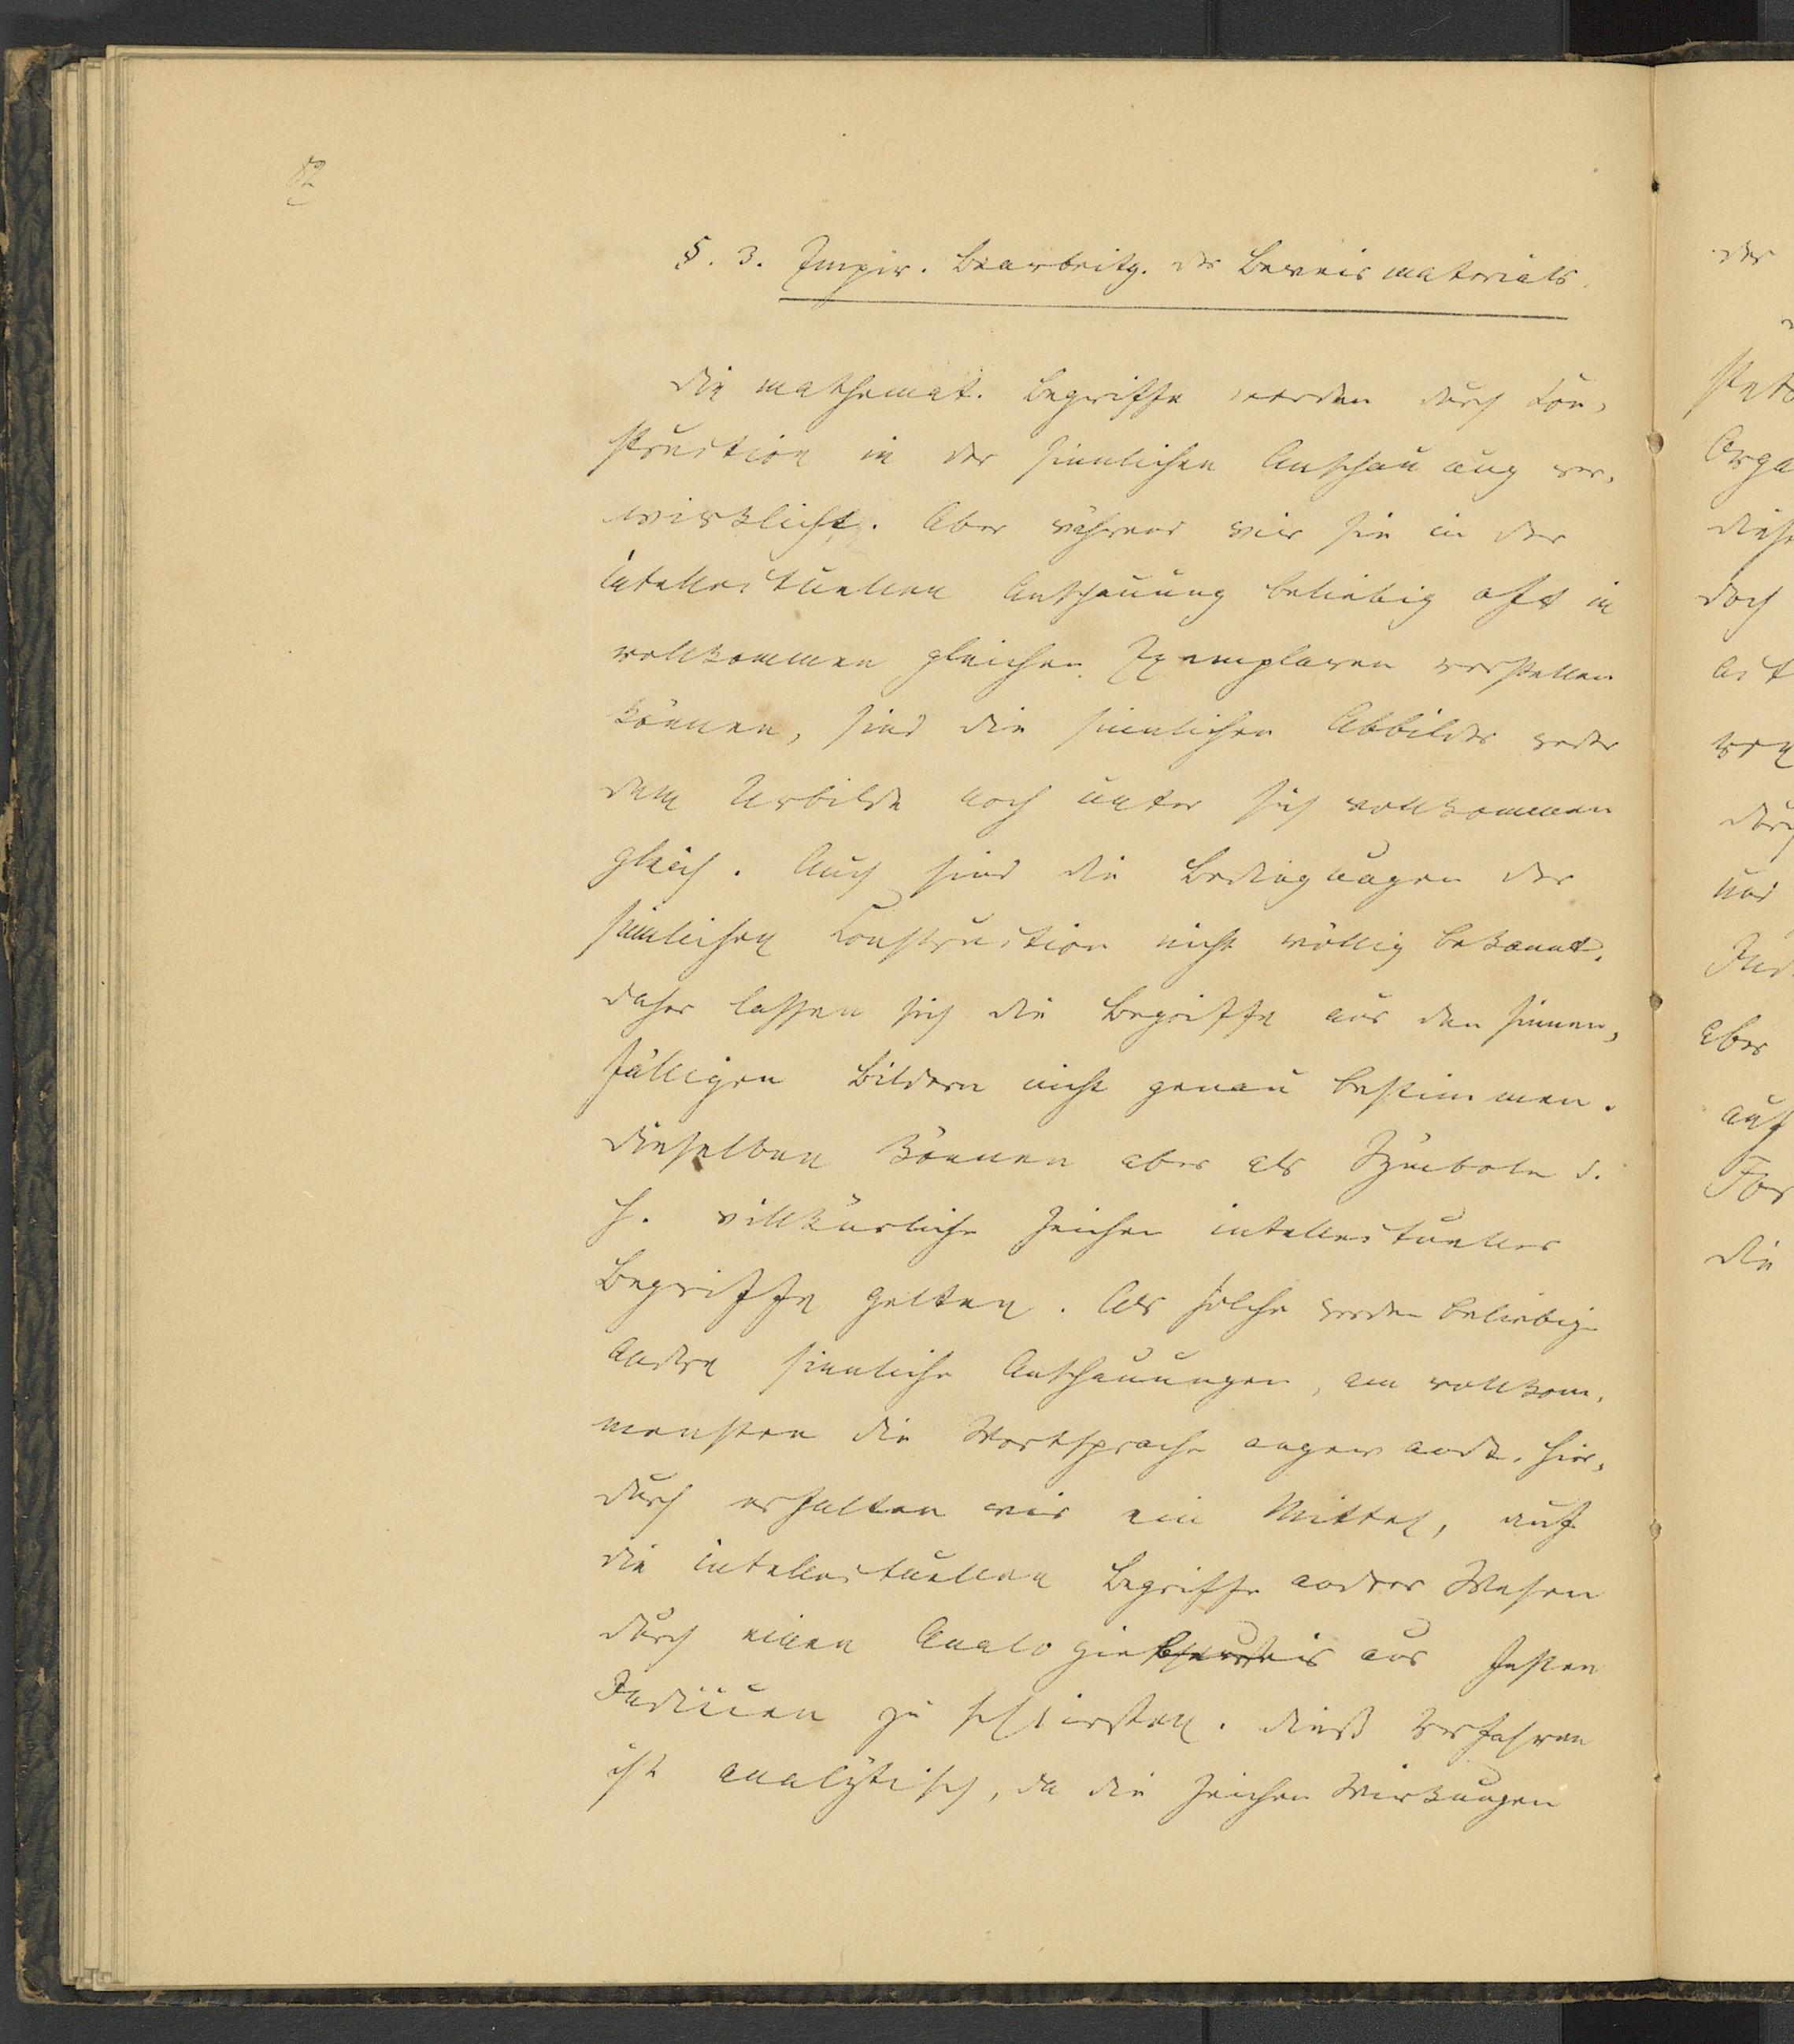 82
§. 3. Empir. Bearbeitg. des Beweismaterials.
Die mathemat. Begriffe werden durch Con-
struction in der sinnlichen Anschauung ver-
wirklicht. Aber während wir sie in der
intellectuellen Anschauung beliebig oft in
vollkommen gleichen Exemplaren vorstellen
können, sind die sinnlichen Abbilder weder
dem Urbilde noch unter sich vollkommen
gleich. Auch sind die Bedingungen der
sinnlichen Construction nicht völlig bekannt.
Daher lassen sich die Begriffe aus den sinnen-
fälligen Bildern nicht genau bestimmen.
Dieselben können aber als Symbole d.
h. willkürliche Zeichen intellectueller
Begriffe gelten. Als solche werden beliebige
andre sinnliche Anschauungen, am vollkom-
mensten die Wortsprache angewandt. Hier-
durch erhalten wir ein Mittel, auf
die intellectuellen Begriffe andrer Wesen
durch einen Analogie aus festen
Indicien zu schliessen. Dieß Verfahren
ist analytisch, da die Zeichen Wirkungen
der
Orga
diese
doch
und
Ind
aber
auf
For
die